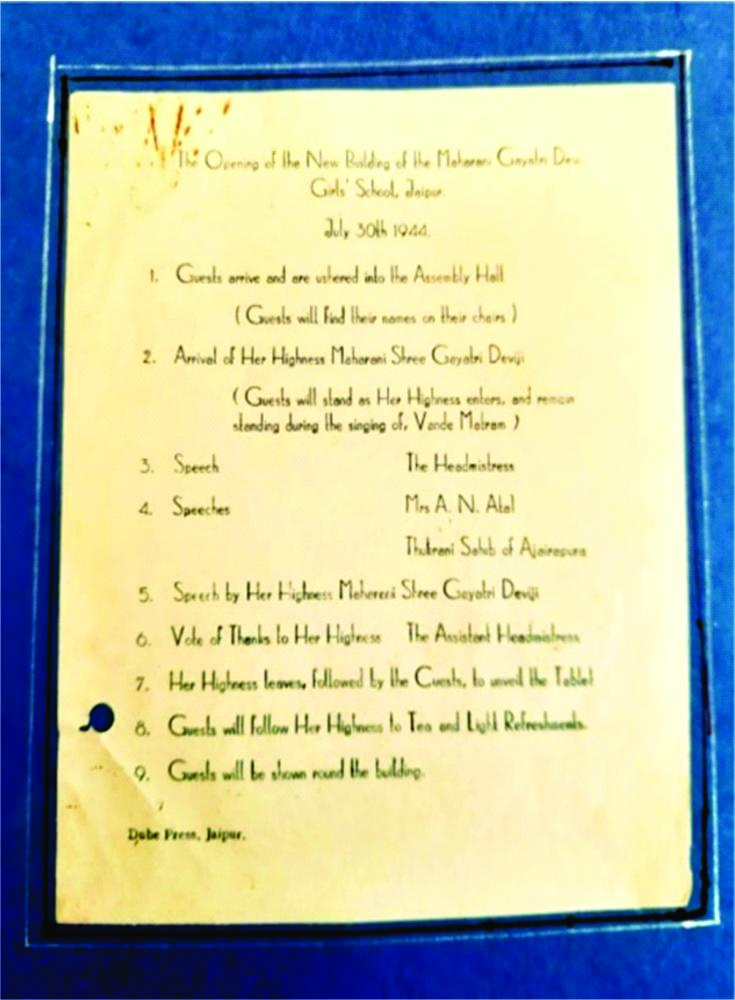 The Opening of the New Building of the Maharani Gayatri Devi
Girls' School, Jaipur.
July 30th 1944.
1. Guests arrive and are ushered into the Assembly Hall
( Guests will find their names on their chairs )
2. Arrival of Her Highness Maharani Shree Gayatri Deviji
( Guests will stand as Her Highness enters, and remain
standing during the singing of, Vande Matram )
3. Speech The Headmistress
4. Speeches Mrs A. N. Atal
Thukrani Sahib of Ajairapura
5. Speech by Her Highness Maharani Shree Gayatri Deviji
6. Vote of Thanks to Her Highness The Assistant Headmistress
7. Her Highness leaves, followed by the Guests, to unveil the Tablet
8. Guests will follow Her Highness to Tea and Light Refreshments.
9. Guests will be shown round the building.
Dube Press, Jaipur.